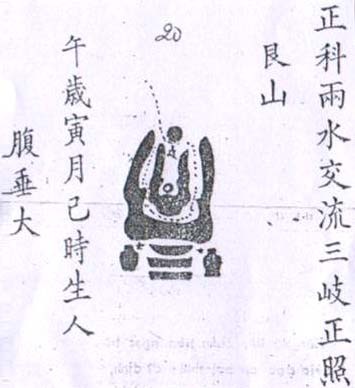 正科兩水交流三岐正照
艮山
20
午歲寅月己時生人
腹垂大